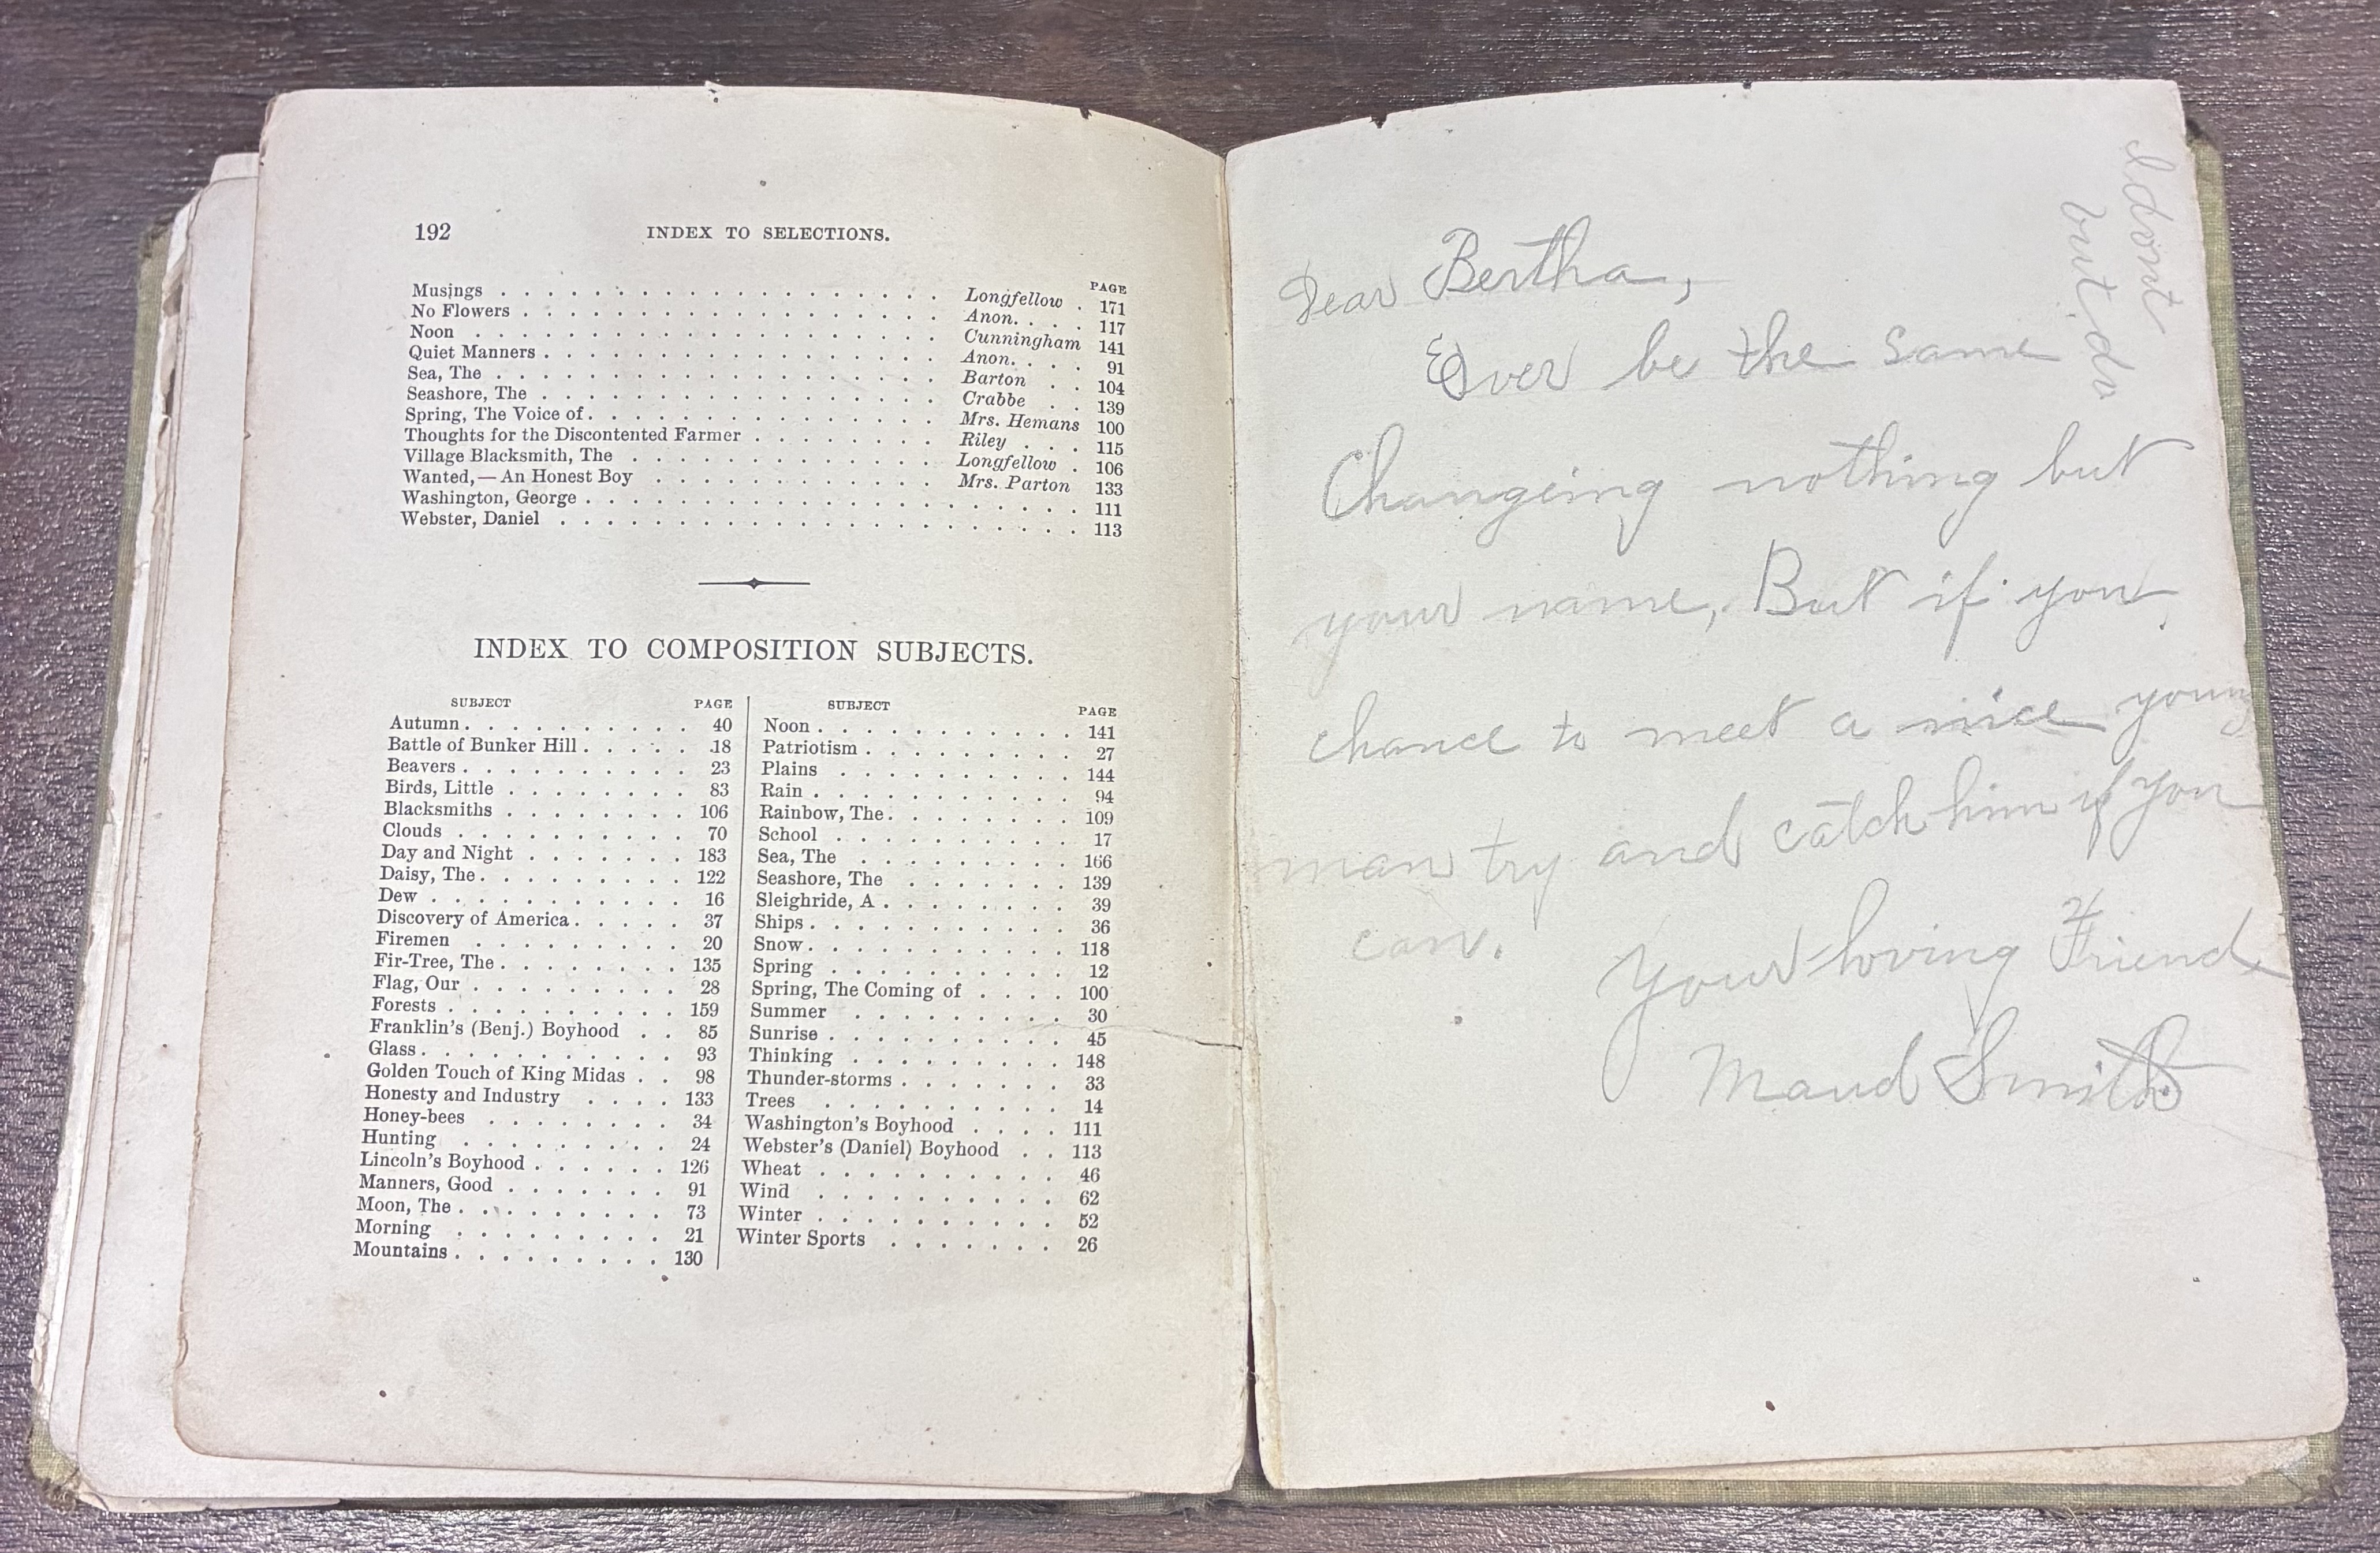 192 INDEX TO SELECTIONS.
PAGE
Musings . . . . . . . . . . . . . . . . . . . Longfellow . 171
No Flowers . . . . . . . . . . . . . . . . . . Anon. . . . 117
Noon . . . . . . . . . . . . . . . . . . . . Cunningham 141
Quiet Manners . . . . . . . . . . . . . . . . . Anon. . . . 91
Sea, The . . . . . . . . . . . . . . . . . . . Barton . . 104
Seashore, The . . . . . . . . . . . . . . . . . Crabbe . . 139
Spring, The Voice of . . . . . . . . . . . . . . Mrs. Hemans 100
Thoughts for the Discontented Farmer . . . . . . . . Riley . . . 115
Village Blacksmith, The . . . . . . . . . . . . . Longfellow . 106
Wanted,—An Honest Boy . . . . . . . . . . . . Mrs. Parton 133
Washington, George . . . . . . . . . . . . . . . . . . . . 111
Webster, Daniel . . . . . . . . . . . . . . . . . . . . . 113
INDEX TO COMPOSITION SUBJECTS.
SUBJECT PAGE
Autumn . . . . . . . . . . 40
Battle of Bunker Hill . . . . . 18
Beavers . . . . . . . . . . 23
Birds, Little . . . . . . . . 83
Blacksmiths . . . . . . . . 106
Clouds . . . . . . . . . . 70
Day and Night . . . . . . . 183
Daisy, The . . . . . . . . . 122
Dew . . . . . . . . . . . 16
Discovery of America . . . . . 37
Firemen . . . . . . . . . 20
Fir-Tree, The . . . . . . . . 135
Flag, Our . . . . . . . . . 28
Forests . . . . . . . . . . 159
Franklin's (Benj.) Boyhood . . 85
Glass . . . . . . . . . . . 93
Golden Touch of King Midas . . 98
Honesty and Industry . . . . 133
Honey-bees . . . . . . . . 34
Hunting . . . . . . . . . 24
Lincoln's Boyhood . . . . . . 126
Manners, Good . . . . . . . 91
Moon, The . . . . . . . . . 73
Morning . . . . . . . . . 21
Mountains . . . . . . . . . 130
SUBJECT PAGE
Noon . . . . . . . . . . . 141
Patriotism . . . . . . . . . 27
Plains . . . . . . . . . . 144
Rain . . . . . . . . . . . 94
Rainbow, The . . . . . . . . 109
School . . . . . . . . . . 17
Sea, The . . . . . . . . . 166
Seashore, The . . . . . . . 139
Sleighride, A . . . . . . . . 39
Ships . . . . . . . . . . . 36
Snow . . . . . . . . . . . 118
Spring . . . . . . . . . . 12
Spring, The Coming of . . . . 100
Summer . . . . . . . . . 30
Sunrise . . . . . . . . . . 45
Thinking . . . . . . . . . 148
Thunder-storms . . . . . . . 33
Trees . . . . . . . . . . 14
Washington's Boyhood . . . . 111
Webster's (Daniel) Boyhood . . 113
Wheat . . . . . . . . . . 46
Wind . . . . . . . . . . 62
Winter . . . . . . . . . . 52
Winter Sports . . . . . . . 26
Dear Bertha,
Ever be the same
Changeing nothing but
your name, But if you
chance to meet a nice young
man try and catch him if you
can.
Your loving Friend
Maud Smith
I dont
but do